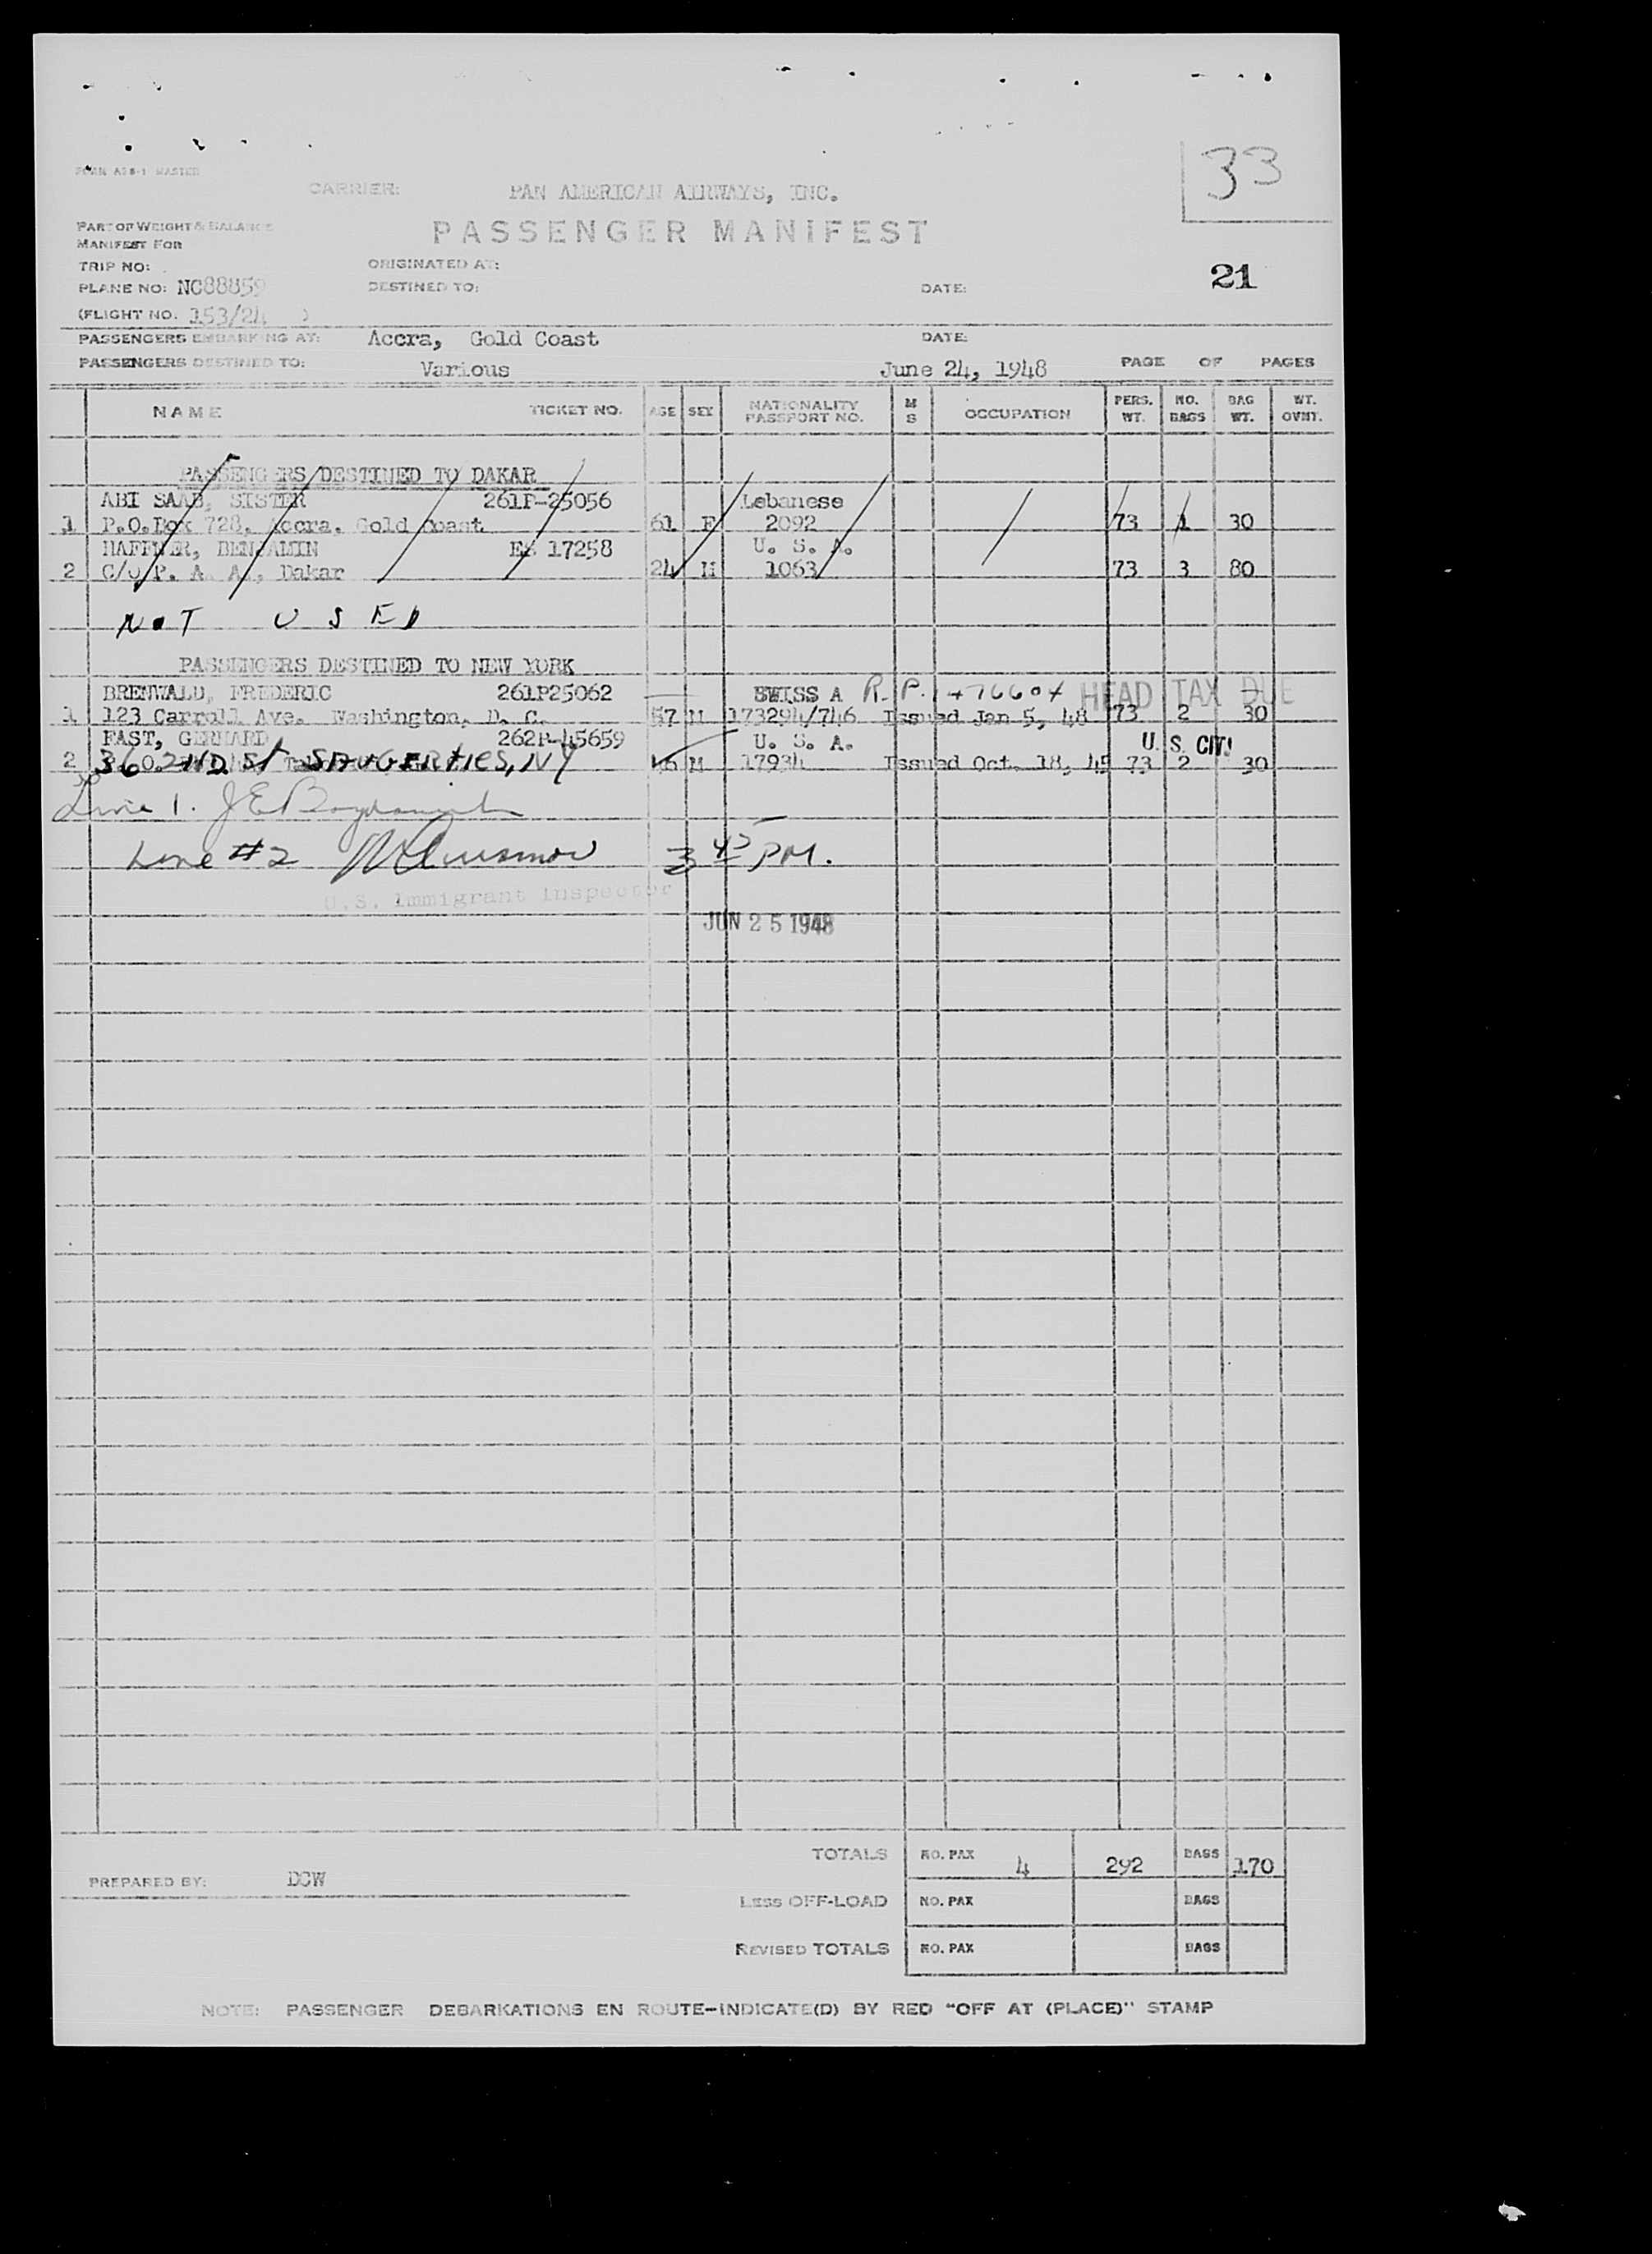 33
FORM ATS-1 MASTER
CARRIER: PAN AMERICAN AIRWAYS, INC.
PART OF WEIGHT & BALANCE
MANIFEST FOR
PASSENGER MANIFEST
TRIP NO: ORIGINATED AT:
21
PLANE NO: NC88859 DESTINED TO: DATE:
(FLIGHT NO. 153/24 )
PASSENGERS EMBARKING AT: Accra, Gold Coast DATE:
PASSENGERS DESTINED TO: Various June 24, 1948 PAGE OF PAGES
NAME TICKET NO. AGE SEX NATIONALITY PASSPORT NO. M S OCCUPATION PERS. WT. NO. BAGS BAG WT. WT. OVMT.
PASSENGERS DESTINED TO DAKAR
ABI SAAB, SISTER 261P-25056 Lebanese
1 P.O.Box 728, Accra, Gold Coast 61 F 2092 73 1 30
HAFFNER, BENJAMIN ES 17258 U. S. A.
2 C/O P. A. A., Dakar 24 M 1063 73 3 80
NOT USED
PASSENGERS DESTINED TO NEW YORK
BRENWALD, FREDERIC 261P25062 SWISS A R.P. 1476604 HEAD TAX DUE
1 123 Carroll Ave. Washington, D. C. 57 M 173294/746 Issued Jan 5, 48 73 2 30
FAST, GERHARD 262P-45659 U. S. A. U. S. CIT!
2 36 2ND St SAUGERTIES, NY 46 M 17934 Issued Oct. 18, 45 73 2 30
Line 1.
Line #2 3 45 PM.
U.S. Immigrant Inspector
JUN 25 1948
TOTALS NO. PAX 4 292 BAGS 170
PREPARED BY: DCW
LESS OFF-LOAD NO. PAX BAGS
REVISED TOTALS NO. PAX BAGS
NOTE: PASSENGER DEBARKATIONS EN ROUTE-INDICATE(D) BY RED "OFF AT (PLACE)" STAMP